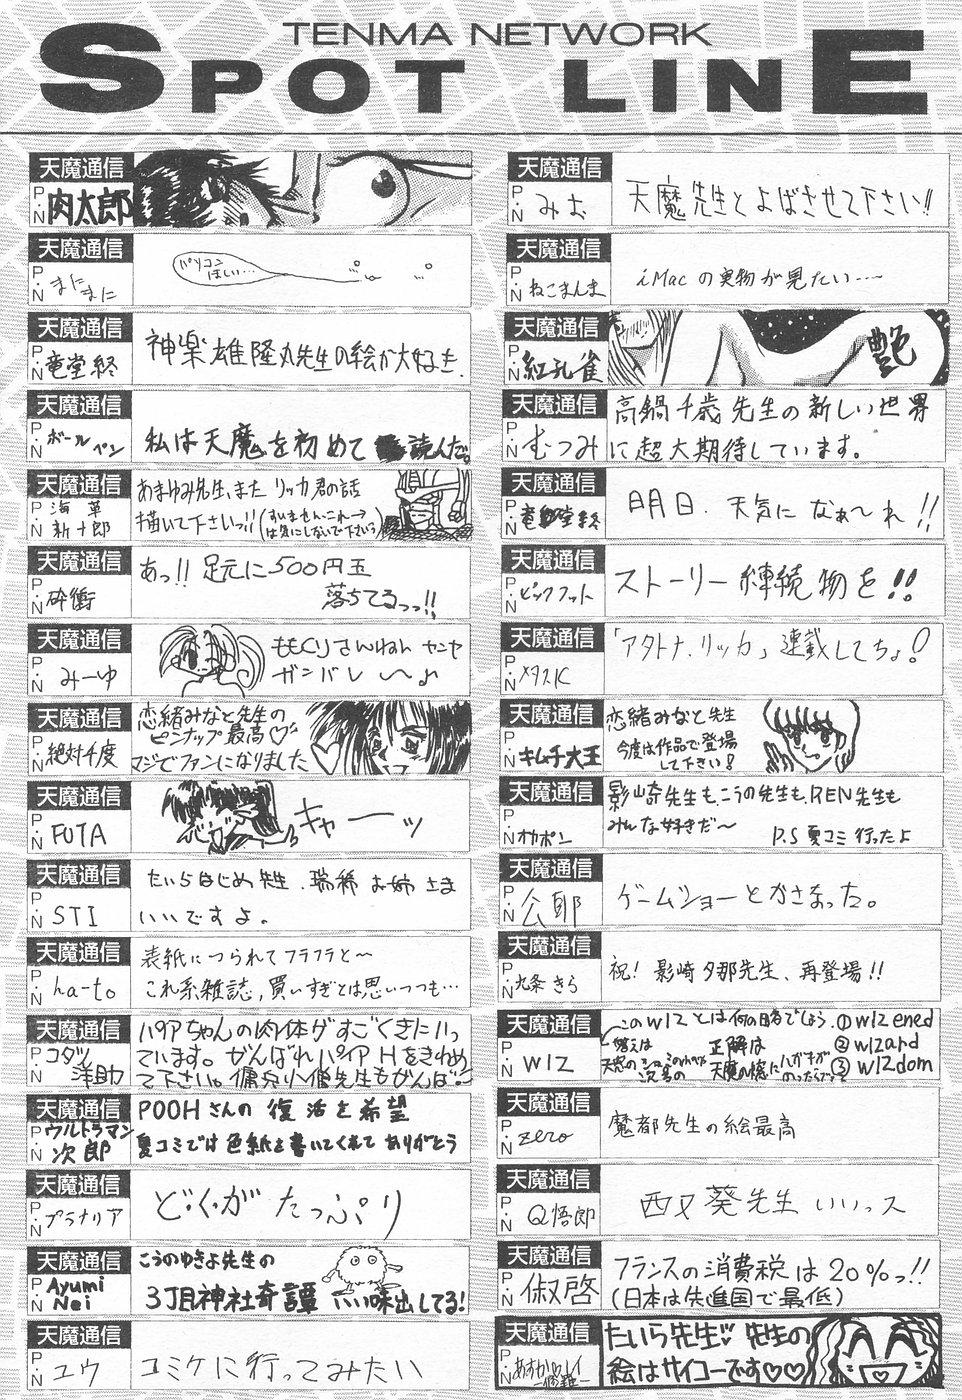 TENMA NETWORK
SPOT LINE
天魔通信
P・N 肉太郎
天魔通信
P・N まにまに
パソコンほしい…
天魔通信
P・N 竜堂終
神楽雄隆丸先生の絵が大好き.
天魔通信
P・N ボールペン
私は天魔を初めて読んだ。
天魔通信
P・N 海草新十郎
あまゆみ先生、また リッカ君の話
描いて下さいっ!!(すいません、これ→は気にしないで下さい)
天魔通信
P・N 砕衝
あっ!! 足元に500円玉
落ちてるっっ!!
天魔通信
P・N みーゆ
ももくりさんねん
ガンバレ 〜♪
天魔通信
P・N 絶対千度
恋緒みなと先生の
ピンナップ最高♡
マジでファンになりました
天魔通信
P・N FUTA
キャーッ
天魔通信
P・N STI
たいらはじめ先生、瑞稀お姉さま
いいですよ。
天魔通信
P・N ha-to
表紙につられてフラフラと〜
これ系雑誌,買いすぎとは思いつつも…
天魔通信
P・N コダツ洋助
パイアちゃんの肉体がすごくきにいっ
ています。がんばれパイア Hをきわめ
て下さい。傭兵小僧先生もがんば
天魔通信
P・N ウルトラマン次郎
POOHさんの復活を希望
夏コミでは色紙を書いてくれてありがとう
天魔通信
P・N プラナリア
どくがたっぷり
天魔通信
P・N Ayumi Nei
こうのゆきよ先生の
3丁目神社奇譚 いい味出してる!
天魔通信
P・N ユウ
コミケに行ってみたい
天魔通信
P・N みお
天魔先生とよばさせて下さい!!
天魔通信
P・N ねこまんま
iMacの実物が見たい…
天魔通信
P・N 紅孔雀
艶
天魔通信
P・N むつみ
高鍋千歳先生の新しい世界
に超大期待しています。
天魔通信
P・N 竜堂終
明日、天気になぁ〜れ!!
天魔通信
P・N ビックフット
ストーリー連続物を!!
天魔通信
P・N
「アタトナ.リッカ」連載してちょ!
天魔通信
P・N キムチ大王
恋緒みなと先生
今度は作品で登場
して下さい!
天魔通信
P・N オカポン
影崎先生も、こうの先生も、REN先生も
みんな好きだ〜 P.S 夏コミ行ったよ
天魔通信
P・N 公耶
ゲームショーとかさなった。
天魔通信
P・N 九条きら
祝! 影崎夕那先生、再登場!!
天魔通信
P・N WIZ
このWIZとは何の略でしょう.①wizened
答えは 正解は ②wizard
③wizdom
天魔通信
P・N zero
魔都先生の絵最高
天魔通信
P・N Q悟郎
西又葵先生いいっス
天魔通信
P・N 俶啓
フランスの消費税は20%っ!!
(日本は先進国で最低)
天魔通信
P・N
たいら先生♡ 先生の
絵はサイコーです♡♡